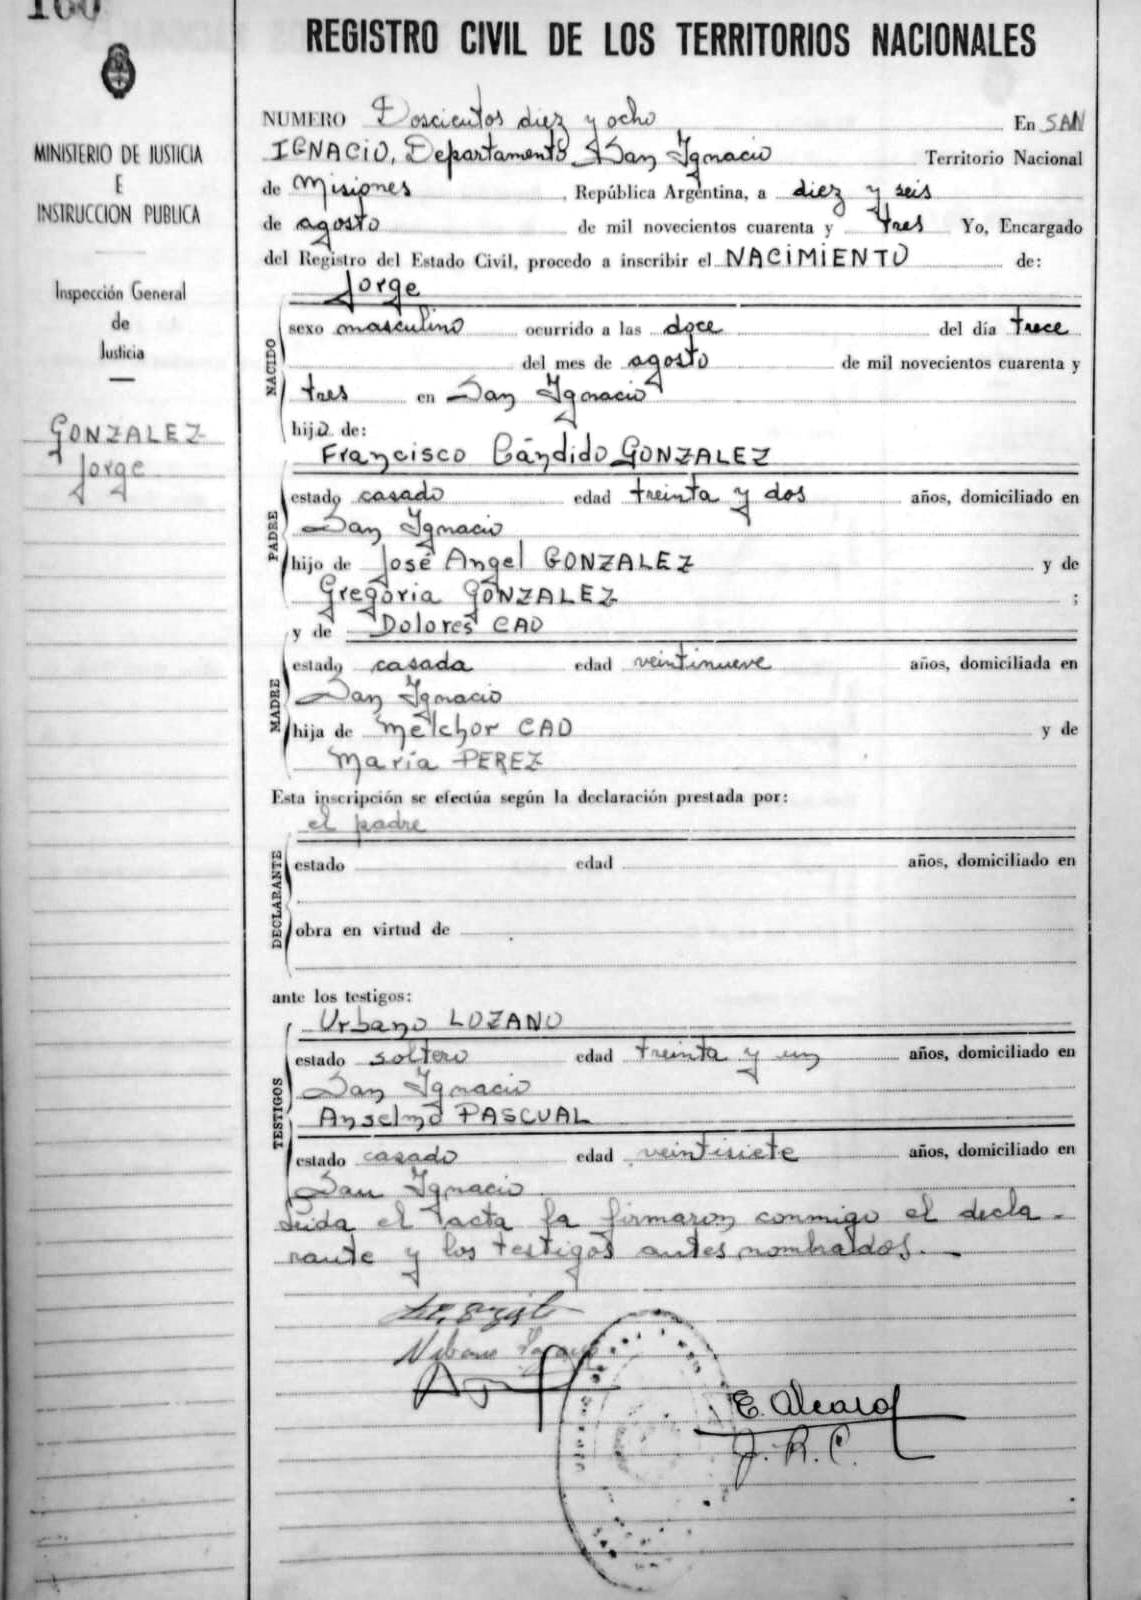 160
REGISTRO CIVIL DE LOS TERRITORIOS NACIONALES
MINISTERIO DE JUSTICIA
E
INSTRUCCION PUBLICA
Inspección General
de
Justicia
GONZALEZ
Jorge
NUMERO Doscientos diez y ocho En SAN
IGNACIO, Departamento San Ignacio Territorio Nacional
de Misiones, República Argentina, a diez y seis
de agosto de mil novecientos cuarenta y tres Yo, Encargado
del Registro del Estado Civil, procedo a inscribir el NACIMIENTO de:
Jorge
NACIDO
sexo masculino ocurrido a las doce del día trece
del mes de agosto de mil novecientos cuarenta y
tres en San Ignacio
hijo de:
Francisco Cándido GONZALEZ
PADRE
estado casado edad treinta y dos años, domiciliado en
San Ignacio
hijo de José Angel GONZALEZ y de
Gregoria GONZALEZ ;
y de Dolores CAO
MADRE
estado casada edad veintinueve años, domiciliada en
San Ignacio
hija de Melchor CAO y de
María PEREZ
Esta inscripción se efectúa según la declaración prestada por:
el padre
DECLARANTE
estado edad años, domiciliado en
obra en virtud de
ante los testigos:
Urbano LOZANO
TESTIGOS
estado soltero edad treinta y un años, domiciliado en
San Ignacio
Anselmo PASCUAL
estado casado edad veintisiete años, domiciliado en
San Ignacio
Leida el acta la firmaron conmigo el decla-
rante y los testigos antes nombrados.-
E. Alcaraz
J. R. C.